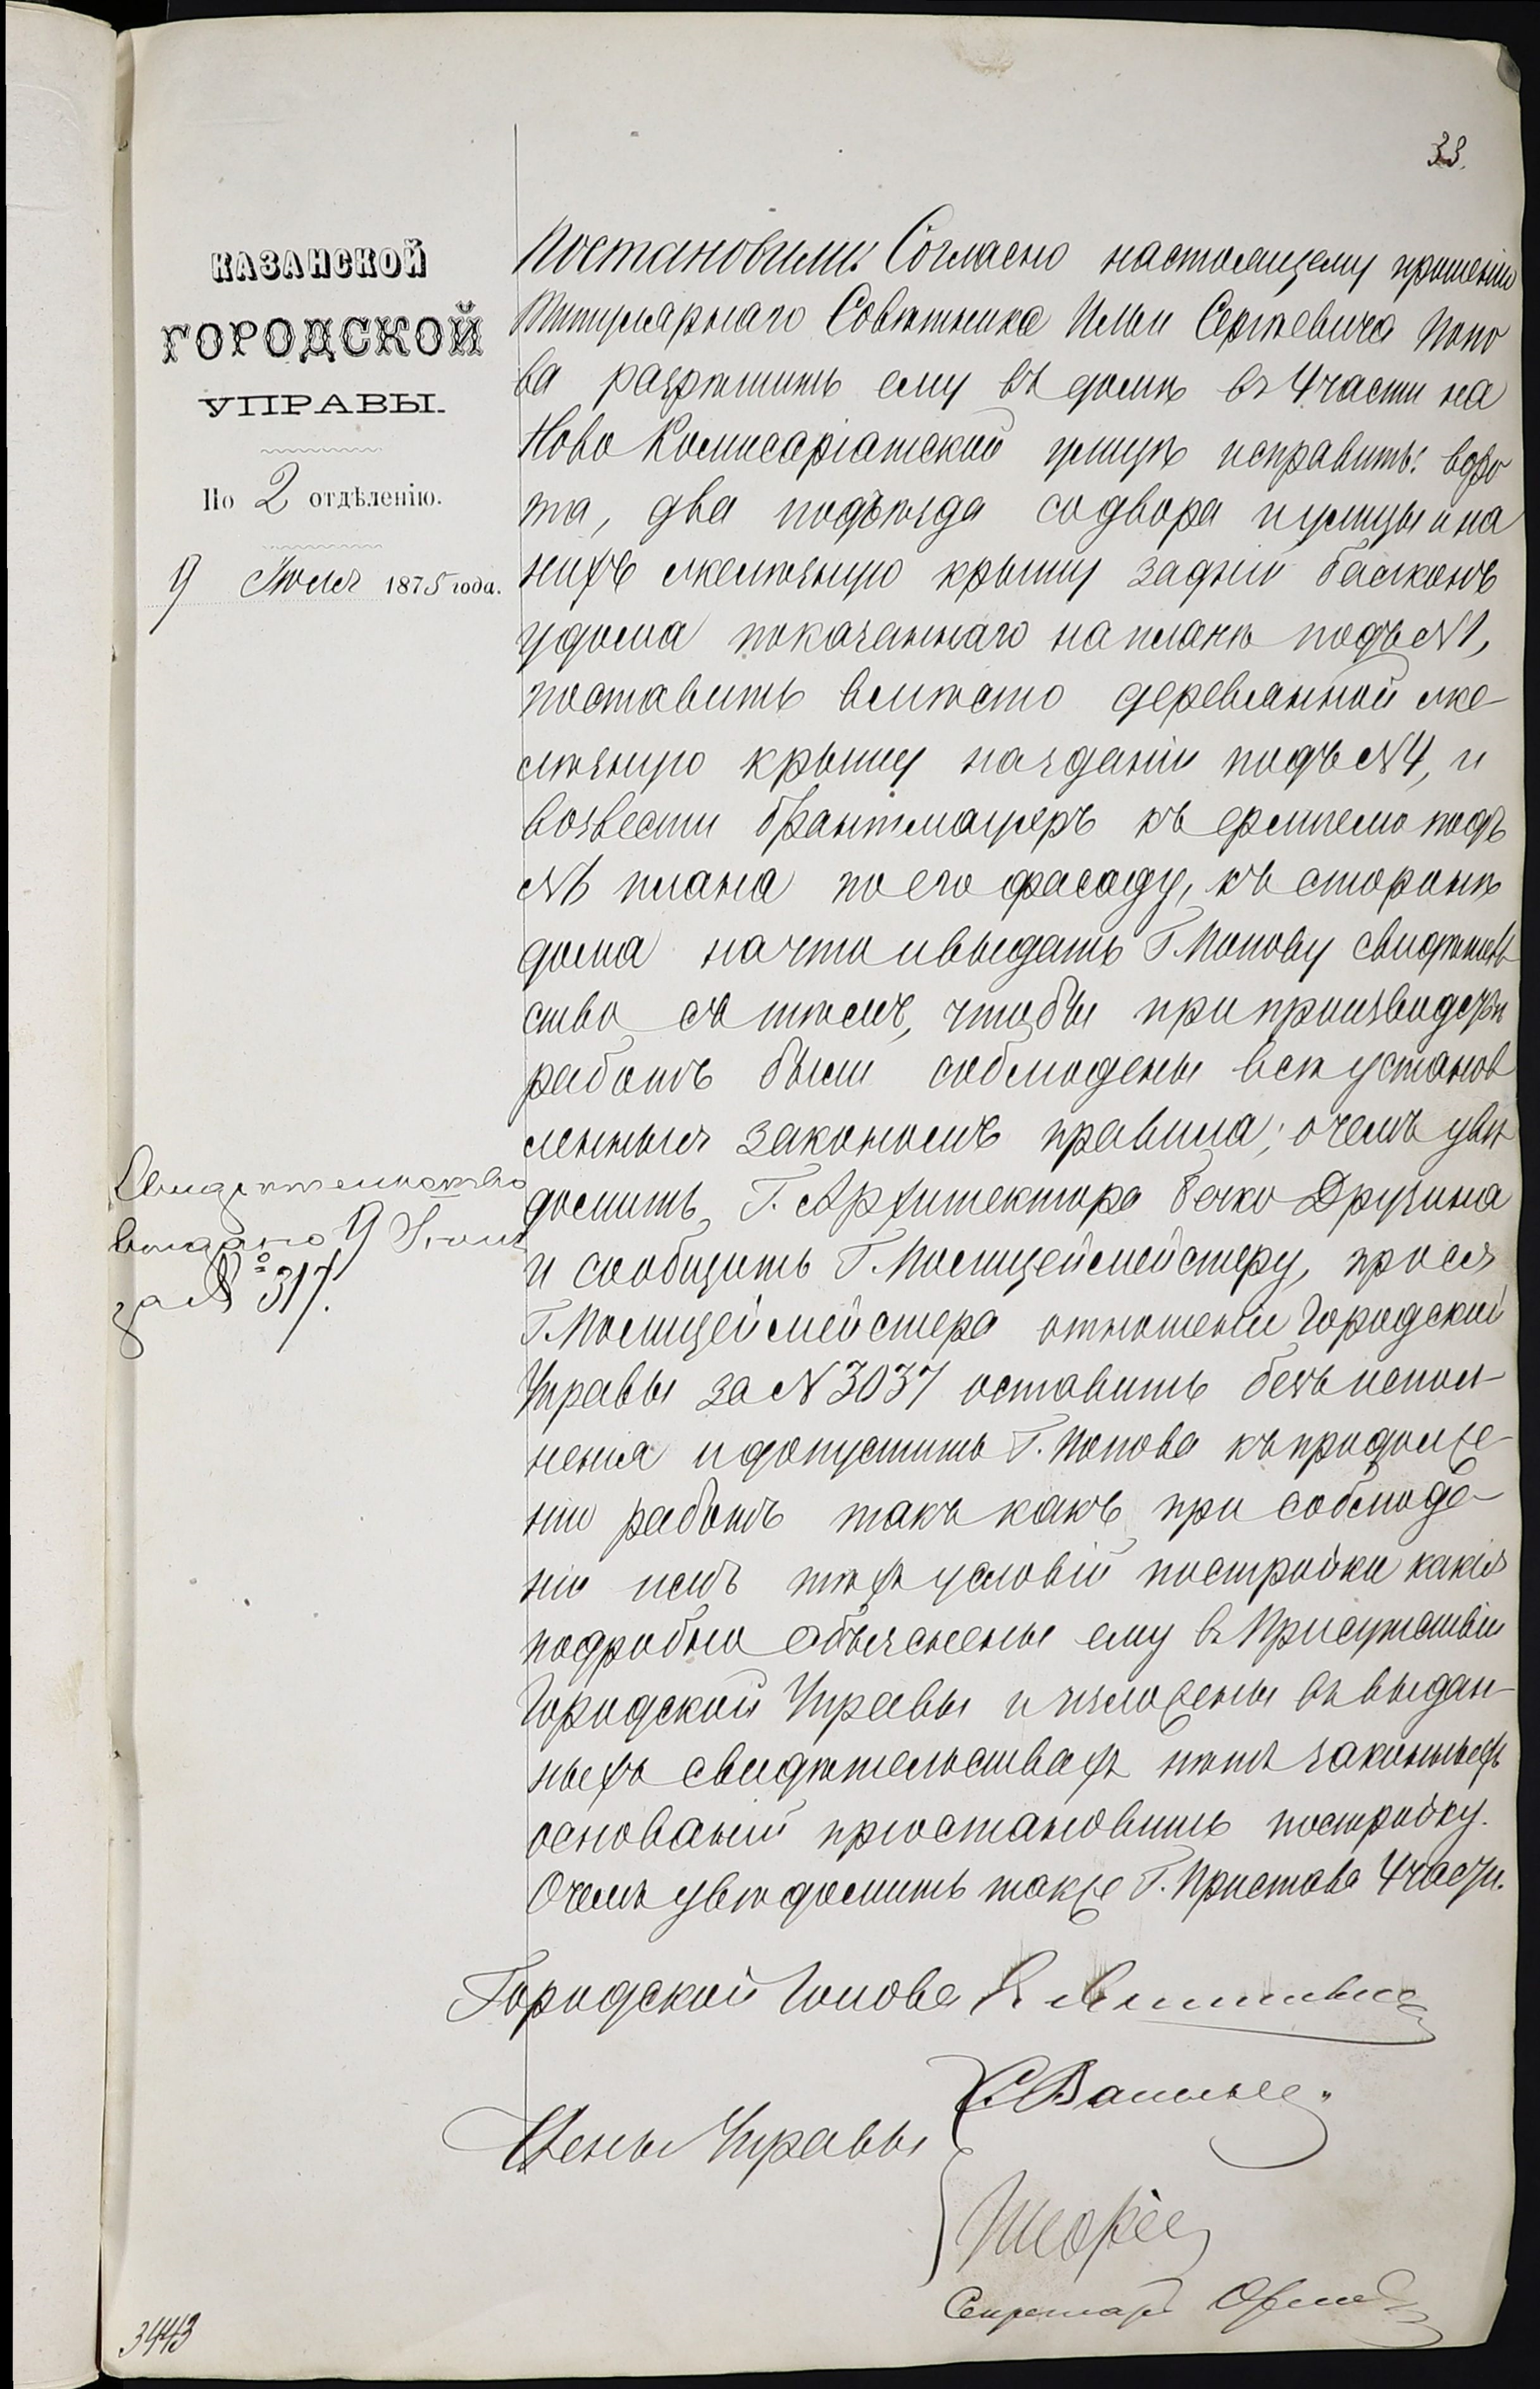 33.
КАЗАНСКОЙ
ГОРОДСКОЙ
УПРАВЫ.
По 2 отдѣленію.
9 Июля 1875 года.
Постановили: Согласно настоящему прошенію
Титулярнаго Совѣтника Ильи Сергѣевича Попо
ва разрѣшить ему въ домѣ въ 4 части на
Ново Комисаріатской улицѣ исправить: воро
та, два подъѣзда со двора и улицы и на
нихъ желѣзную крышу задній балконъ
у дома показаннаго на планѣ подъ № 1,
поставить вмѣсто деревянной же-
лѣзную крышу на зданіи подъ № 4, и
возвести брантмауеръ къ флигелю подъ
№ плана по его фасаду, къ сторонѣ
дома на что и выдать Г. Попову свидѣтель
ство съ тѣмъ, чтобы при производствѣ
работъ были соблюдены всѣ установ
ленныя закономъ правила; о чемъ увѣ
домить Г. Архитектора Бечко Друзина
и сообщить Г. Полицеймейстеру, прося
Г. Полицеймейстера отношеніе Городской
Управы за № 3037 оставить безъ испол-
ненія и допустить Г. Попова къ продолже-
нію работъ такъ какъ при соблюде-
ніи имъ тѣхъ условій постройки какія
подробно объяснены ему въ Присутствіи
Городской Управы и изложены въ выдан-
ныхъ свидѣтельствахъ нѣтъ законныхъ
основаній пріостановить постройку.
О чемъ увѣдомить также Г. Пристава 4 части.
Свидѣтельство
выдано 9 Июля
за № 317.
Городской Голова
Члены Управы
Секретарь
3443